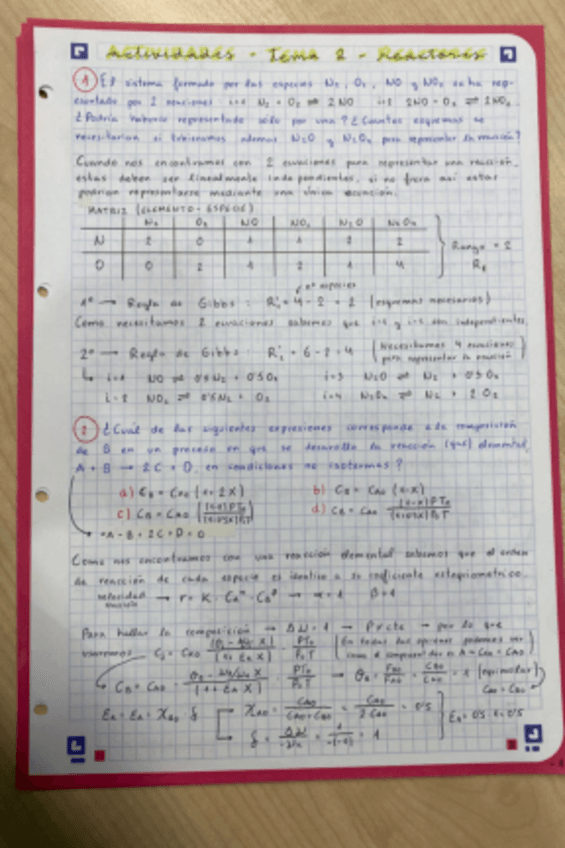 Actividades - Tema 2 - Reactores
1 El sistema formado por las especies N2, O2, NO y NO2 se ha rep-
resentado por 2 reacciones i=1 N2 + O2 ⇌ 2NO i=2 2NO + O2 ⇌ 2NO2
¿Podría haberse representado sólo por una? ¿Cuántos esquemas se
necesitarían si tuviéramos además N2O y N2O4 para representar la reacción?
Cuando nos encontramos con 2 ecuaciones para representar una reacción,
estas deben ser linealmente independientes, si no fuera así estas
podrían representarse mediante una única ecuación.
MATRIZ (ELEMENTO-ESPECIE)
N2 O2 NO NO2 N2O N2O4
N 2 0 1 1 2 2
O 0 2 1 2 1 4
Rango = 2
nº especies
1º → Regla de Gibbs: R'1 = 4 - 2 = 2 (esquemas necesarios)
Como necesitamos 2 ecuaciones sabemos que i=1 y i=2 son independientes.
2º → Regla de Gibbs: R'2 = 6 - 2 = 4 (Necesitamos 4 ecuaciones
para representar la reacción)
i=1 NO ⇌ 0'5N2 + 0'5O2 i=3 N2O ⇌ N2 + 0'5O2
i=2 NO2 ⇌ 0'5N2 + O2 i=4 N2O4 ⇌ N2 + 2O2
2 ¿Cuál de las siguientes expresiones corresponde a la composición
de B en un proceso en que se desarrolla la reacción (gas) elemental,
A + B → 2C + D, en condiciones no isotermas?
a) CB = CA0 (1-2X) b) CB = CA0 (1-X)
c) CB = CA0 d) CB = CA0
-A-B+2C+D=0
Como nos encontramos con una reacción elemental sabemos que el orden
de reacción de cada especie es idéntico a su coeficiente estequiométrico.
velocidad
reacción → r = K · CA^α · CB^β → α=1 β=1
Para hallar la composición → ΔN=1 → P cte → por lo que
usaremos
(En todas las opciones podemos ver
(equimolar)
CA0 = CB0
EA = 0'5 · 1 = 0'5